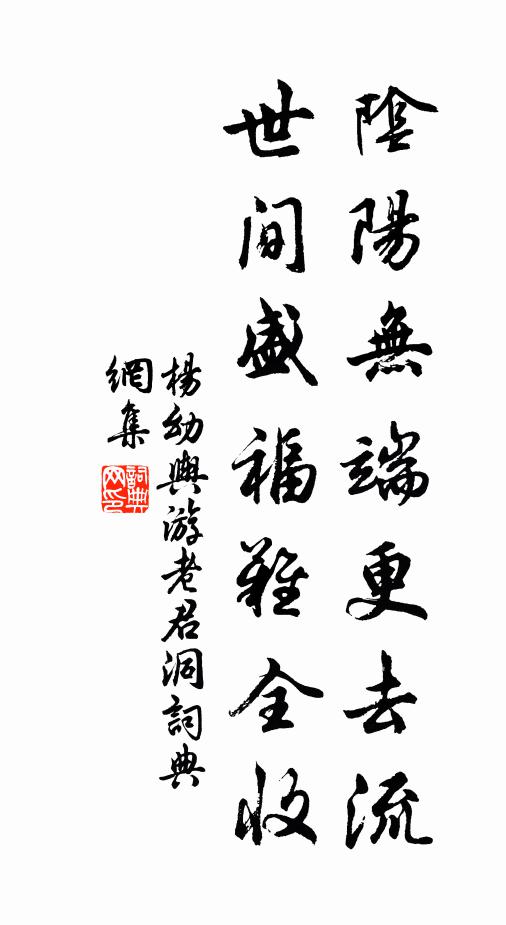 陰陽無端更去流
世間盛福難全收
楊幼輿游老君洞詞典
網集
詞典